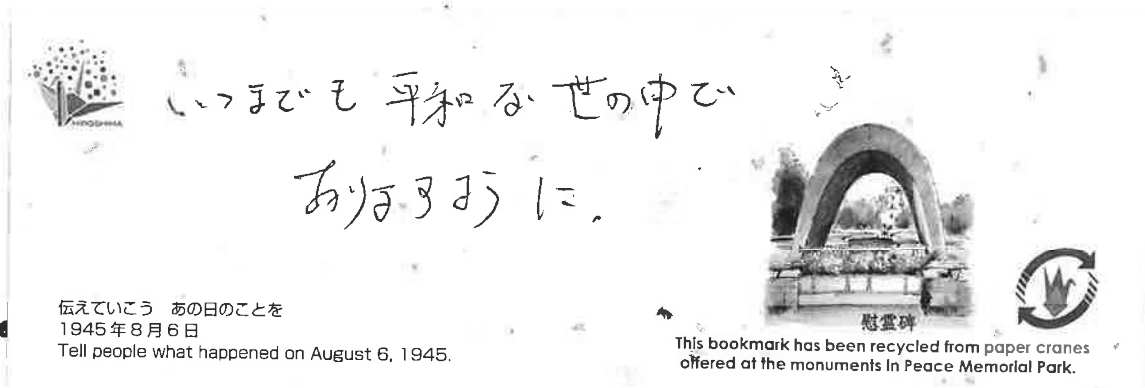 HIROSHIMA
いつまでも 平和な 世の中で
ありますように.
慰霊碑
伝えていこう あの日のことを
1945年8月6日
Tell people what happened on August 6, 1945.
This bookmark has been recycled from paper cranes
offered at the monuments in Peace Memorial Park.